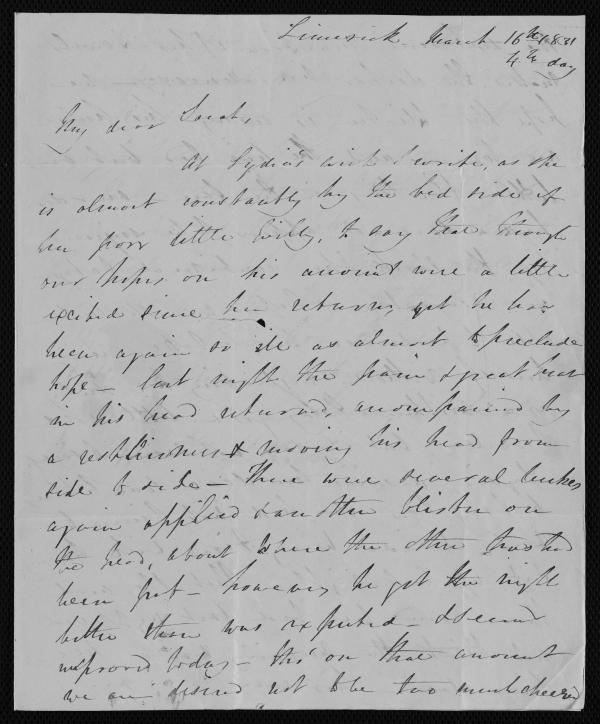 Limerick March 16th 1831
4th day
My dear Sarah,
At Lydia's wish I write, as she
is almost constantly by the bed side of
her poor little Willy, to say that though
our hopes on his account were a little
excited since her return, yet he has
been again so ill as almost to preclude
hope – last night the pain & great heat
in his head returned, accompanied by
a restlessness & moving his head from
side to side – There were several leeches
again applied & another blister on
the head, about where the other had
been put – however he got the night
better than was expected – & seemed
improved today – tho' on that account
we are desired not to be too much cheered